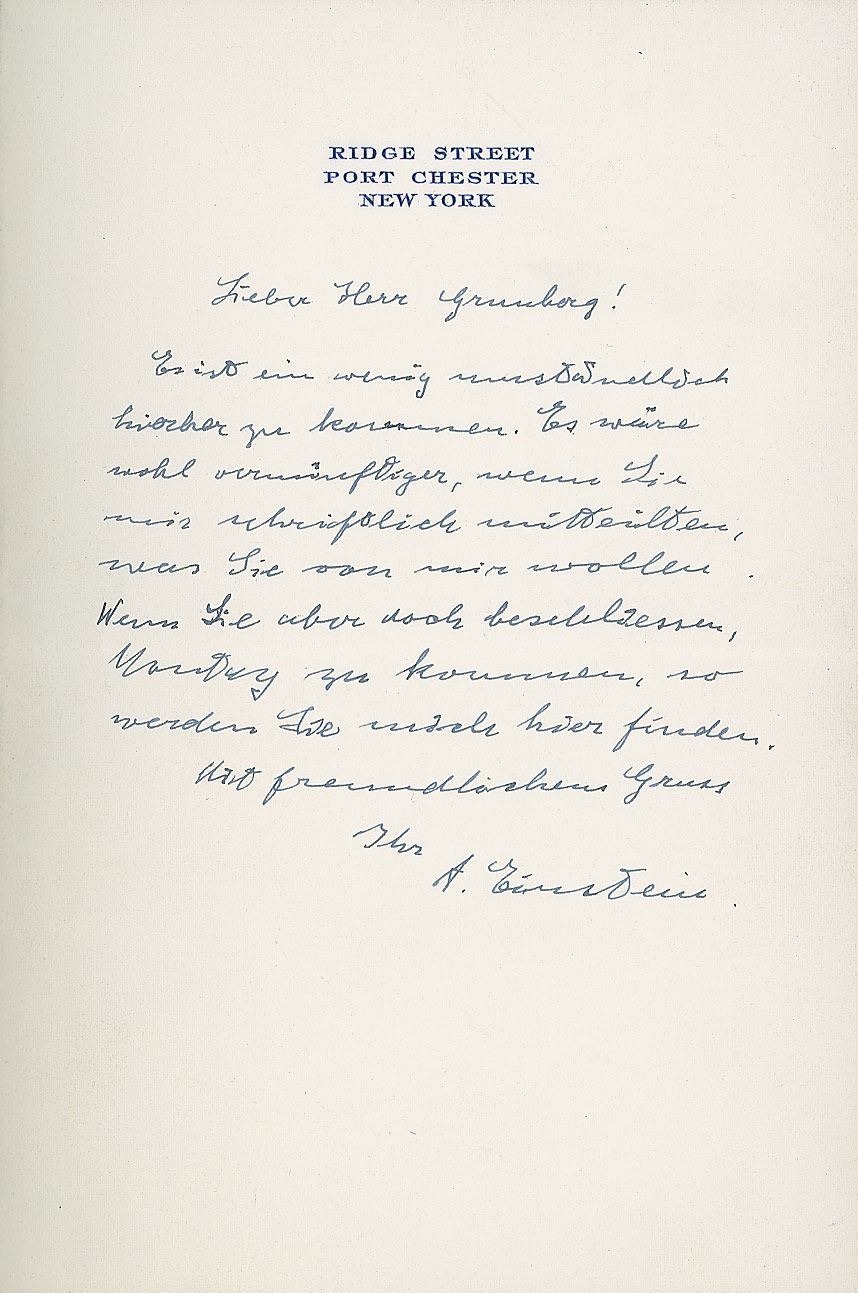 RIDGE STREET
PORT CHESTER
NEW YORK
Lieber Herr Grunberg!
Es ist ein wenig umständlich
hierher zu kommen. Es wäre
wohl vernünftiger, wenn Sie
mir schriftlich mitteilten,
was Sie von mir wollen.
Wenn Sie aber doch beschliessen,
Montag zu kommen, so
werden Sie mich hier finden.
Mit freundlichem Gruss
Ihr
A. Einstein.